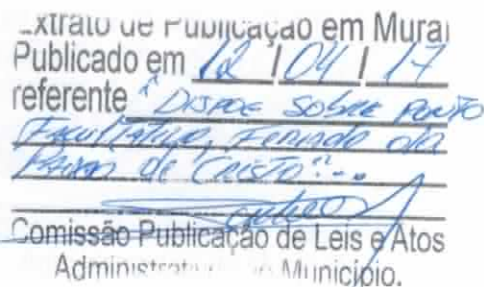 Extrato de Publicação em Mural
Publicado em 12 / 04 / 17
referente "DISPOE SOBRE PONTO
Facultativo, Feriado da
Paixão de CRISTO"...
Comissão Publicação de Leis e Atos
Município.